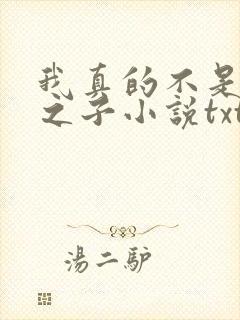 我真的不是
之子小説txt
湯二驴